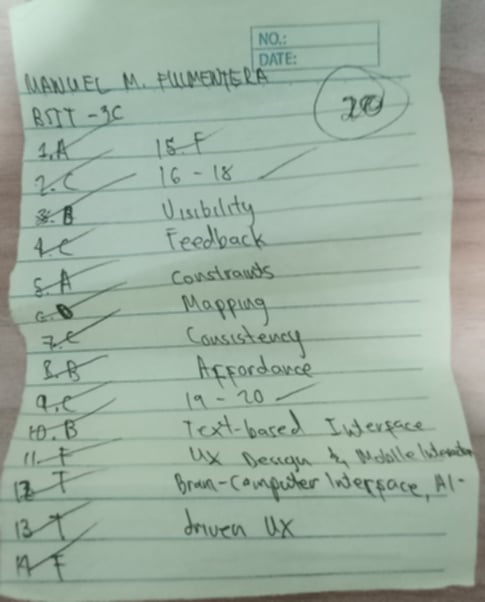 NO.:
DATE:
MANUEL M. FULMENTERA
BSIT - 3C
20
1. A
2. C
3. B
4. C
5. A
6. D
7. C
8. B
9. C
10. B
11. F
12. T
13. T
14. F
15. F
16 - 18
Visibility
Feedback
Constraints
Mapping
Consistency
Affordance
19 - 20
Text-based Interface
UX Design & Mobile Interaction
Brain-Computer Interface, AI-
driven UX